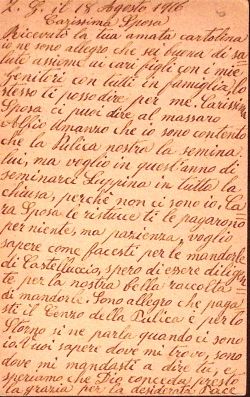 Z. G. il 18 Agosto 1916
Carissima Sposa
Ricevuto la tua amata cartolina
io, ne sono allegro che sei buona di sa
lute assieme ai cari figli con i miei
genitori con tutti in famiglia, lo
stesso ti posso dire per me. Carissima
Sposa i puoi dire al massaro
Alfio che io sono contento
che la Pulica nostra la semina
lui, ma voglio in quest'anno di
seminarci Luppina in tutto la
chiusa, perché non ci sono io. Ca
ra Sposa le ristucce ti le pagarono
per niente, ma pazienza, voglio
sapere come facesti per le mandorle
di Castelluccio, spero di essere
te per la nostra bella raccolta
di mandorle. Sono allegro che paga
sti il Cenzo della Pulica e per lo
Storno si ne parla quando ci sono
io. Vuoi sapere dove mi trovo, sono
dove mi mandasti a dire tu, e
speriamo che Dio conceda presto
la grazia per la desiderata Pace